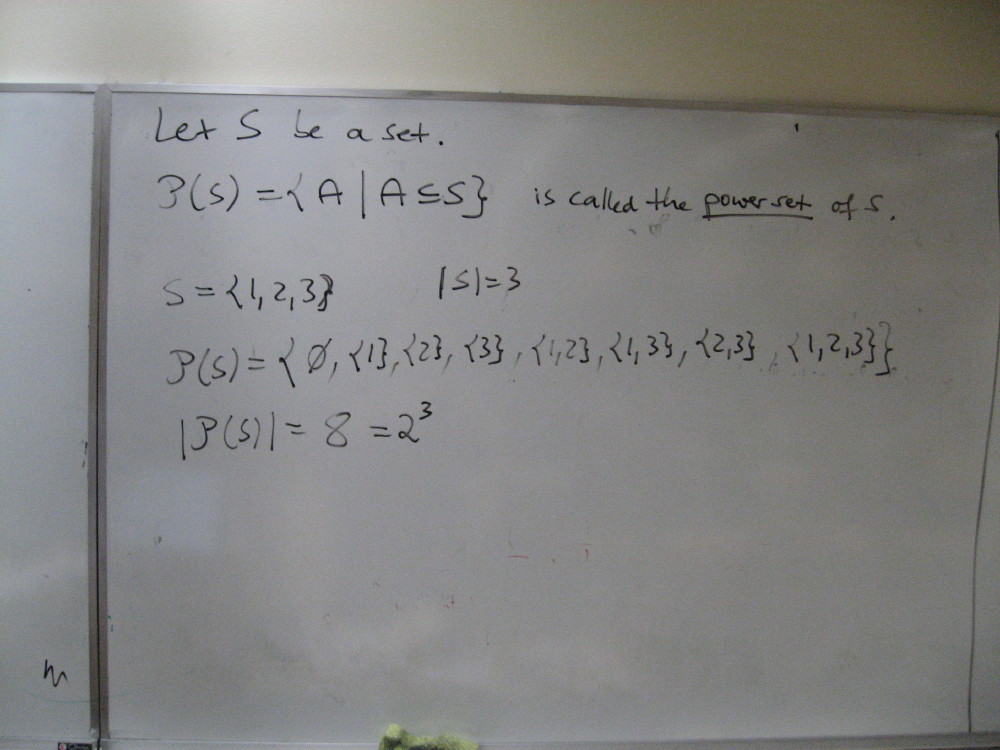 Let S be a set.
P(S) = { A | A ⊆ S } is called the power set of S.
S = {1, 2, 3} |S| = 3
P(S) = { ∅, {1}, {2}, {3}, {1,2}, {1,3}, {2,3}, {1,2,3} }
|P(S)| = 8 = 2³